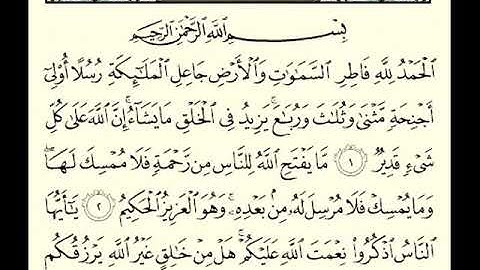 بِسْمِ ٱللَّهِ ٱلرَّحْمَٰنِ ٱلرَّحِيمِ
ٱلْحَمْدُ لِلَّهِ فَاطِرِ ٱلسَّمَٰوَٰتِ وَٱلْأَرْضِ جَاعِلِ ٱلْمَلَٰٓئِكَةِ رُسُلًا أُو۟لِىٓ
أَجْنِحَةٍ مَّثْنَىٰ وَثُلَٰثَ وَرُبَٰعَ ۚ يَزِيدُ فِى ٱلْخَلْقِ مَا يَشَآءُ ۚ إِنَّ ٱللَّهَ عَلَىٰ كُلِّ
شَىْءٍ قَدِيرٌ ١ مَّا يَفْتَحِ ٱللَّهُ لِلنَّاسِ مِن رَّحْمَةٍ فَلَا مُمْسِكَ لَهَا ۖ
وَمَا يُمْسِكْ فَلَا مُرْسِلَ لَهُۥ مِنۢ بَعْدِهِۦ ۚ وَهُوَ ٱلْعَزِيزُ ٱلْحَكِيمُ ٢ يَٰٓأَيُّهَا
ٱلنَّاسُ ٱذْكُرُوا۟ نِعْمَتَ ٱللَّهِ عَلَيْكُمْ ۚ هَلْ مِنْ خَٰلِقٍ غَيْرُ ٱللَّهِ يَرْزُقُكُم